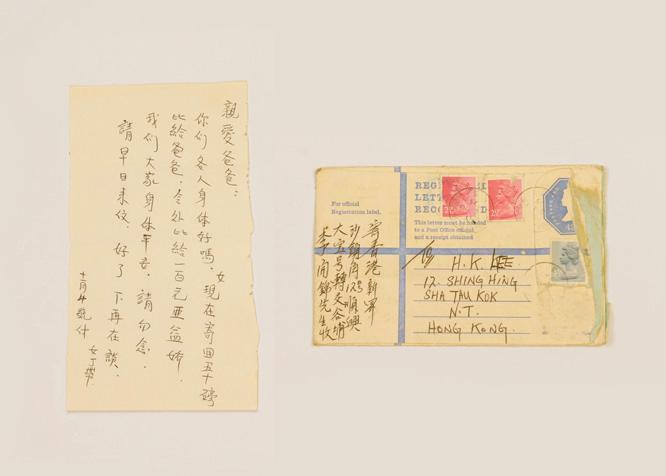 親愛爸爸：
你们各人身体好嗎，女現在寄回五十鎊
比給爸爸，令外比給一百元亚益姊．
我们大家身体平安，請勿念．
請早日来信．好了 下再在談．
十二月4號
For official
Registration label.
REG
LETT
REC D
This letter must be handed
to a Post Office official
and a receipt obtained
寄香港新界
沙頭角12号順興
大宝号轉交谷埔
李開錦先生收
H.K. LEE
12. SHING HING
SHA TAU KOK
N.T.
HONG KONG.